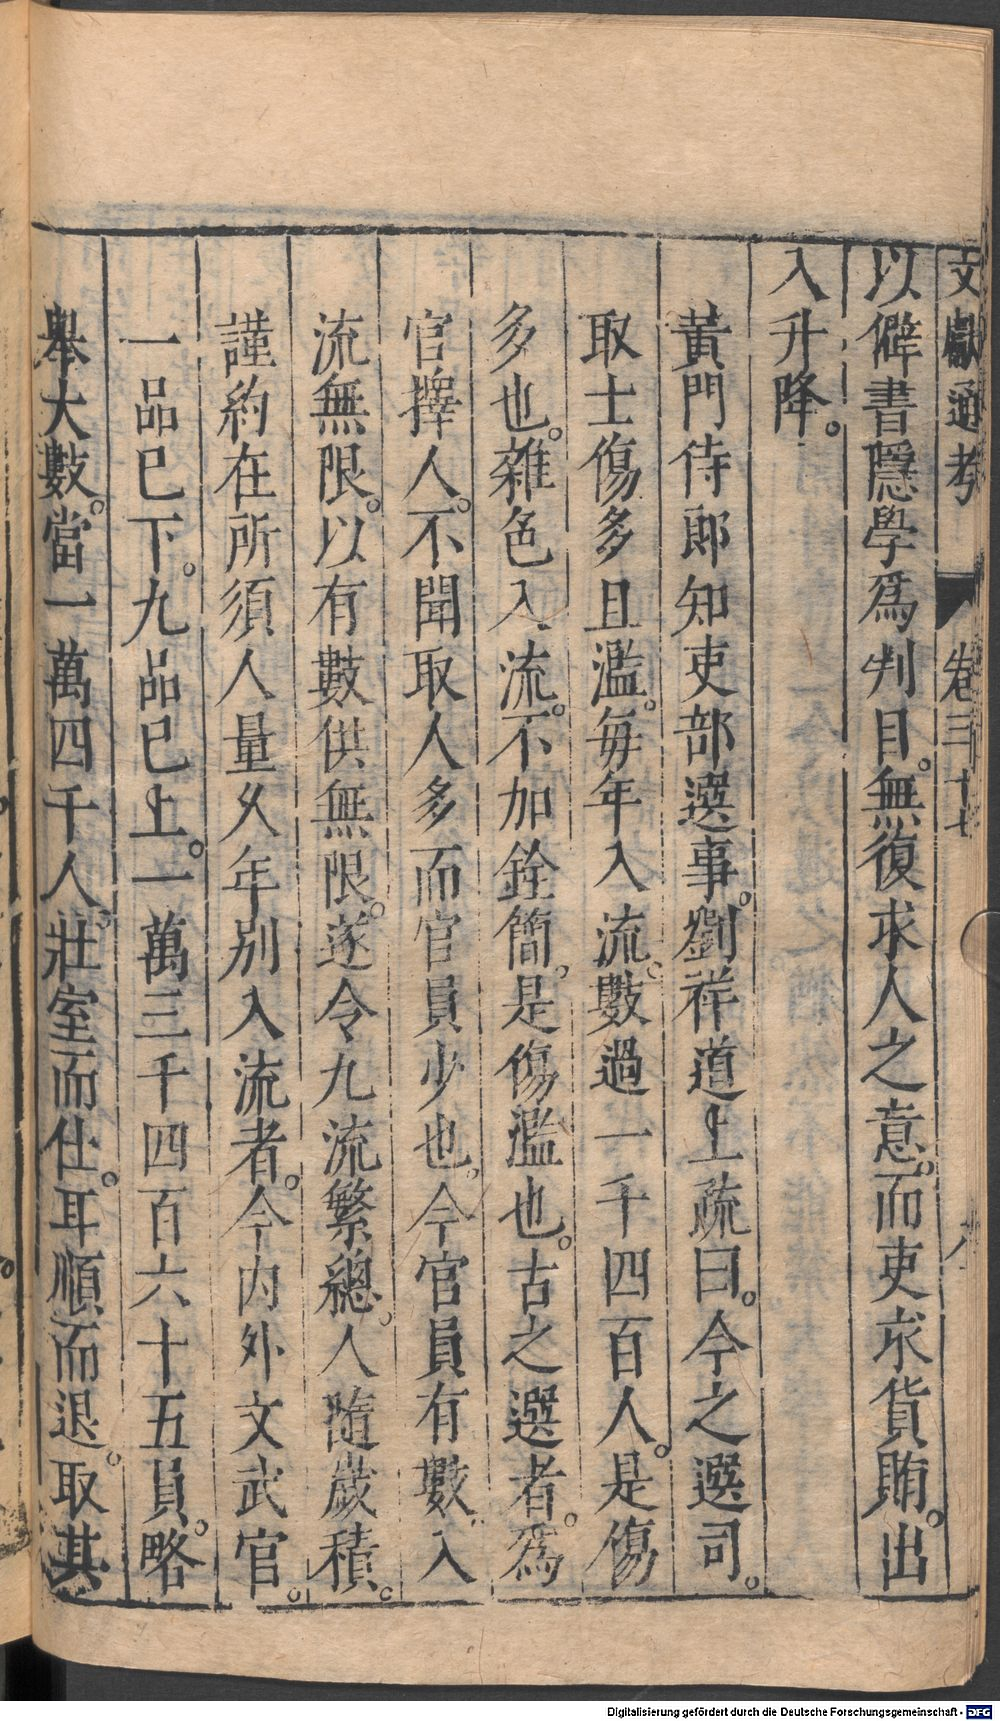 文獻通考 卷三十七 八
以僻書隱學爲判目。無復求人之意。而吏求貨賄。出
入升降。
黃門侍郎知吏部選事。劉祥道上疏曰。今之選司。
取士傷多且濫。每年入流。數過一千四百人。是傷
多也。雜色入流。不加銓簡。是傷濫也。古之選者。爲
官擇人。不聞取人多而官員少也。今官員有數。入
流無限。以有數供無限。遂令九流繁總。人隨歲積。
謹約在所須人量久年別入流者。今內外文武官。
一品已下。九品已上。一萬三千四百六十五員。略
舉大數。當一萬四千人。壯室而仕。耳順而退。取其
Digitalisierung gefördert durch die Deutsche Forschungsgemeinschaft - DFG